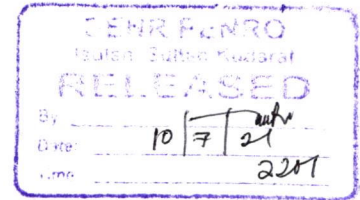 DENR PENRO
Isulan, Sultan Kudarat
RELEASED
By
Date: 10/7/21
Time 2201